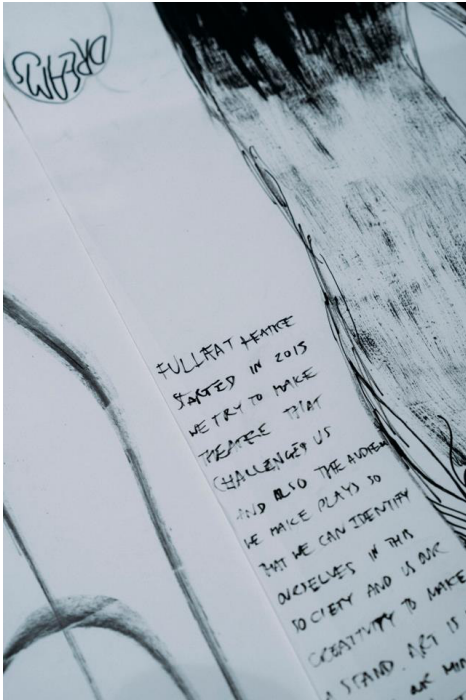 DREAMS
FULLFAT THEATRE
STARTED IN 2015
WE TRY TO MAKE
THEATRE THAT
CHALLENGES US
AND ALSO THE AUDIEN
WE MAKE PLAYS SO
THAT WE CAN IDENTIFY
OURSELVES IN THIS
SOCIETY AND US OUR
CREATIVITY TO MAKE
A STAND. ART IS